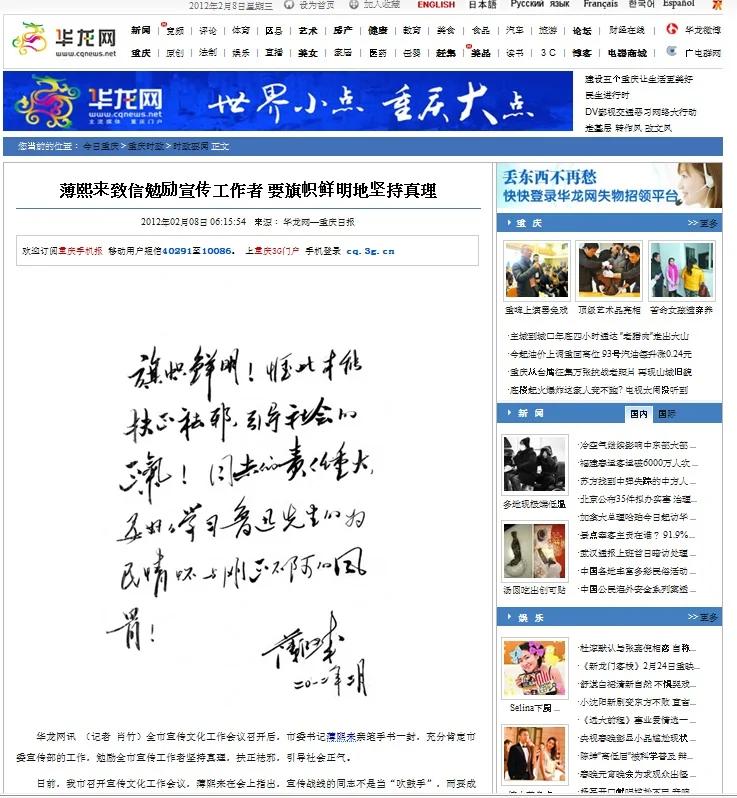 2012年2月8日星期三 设为首页 加入收藏 ENGLISH 日本語 Русский язык Français 한국어 Español
华龙网
www.cqnews.net
新闻 视频 评论 体育 区县 艺术 房产 健康 教育 美食 食品 汽车 旅游 论坛 财经在线 华龙微博
重庆 原创 法制 娱乐 直播 美女 家居 医药 母婴 赶集 美品 读书 3C 博客 电器商城 广电群网
华龙网
www.cqnews.net
主流媒体 重庆门户
世界小点 重庆大点
建设五个重庆让生活更美好
民生进行时
DV影视交通恶习网络大行动
走基层 转作风 改文风
您当前的位置： 今日重庆>重庆时政>时政要闻 正文
薄熙来致信勉励宣传工作者 要旗帜鲜明地坚持真理
2012年02月08日 06:15:54 来源： 华龙网—重庆日报
欢迎订阅重庆手机报 移动用户短信40291至10086。 上重庆3G门户 手机登录 cq.3g.cn
旗帜鲜明！惟此才能
扶正祛邪，引导社会的
正气！同志们责任重大，
要好好学习鲁迅先生们为
民情怀与刚正不阿的风
骨！
薄熙来
二〇一二年二月
华龙网讯 （记者 肖竹）全市宣传文化工作会议召开后，市委书记薄熙来亲笔手书一封，充分肯定市
委宣传部的工作，勉励全市宣传工作者坚持真理，扶正祛邪，引导社会正气。
日前，我市召开宣传文化工作会议，薄熙来在会上指出，宣传战线的同志不是当“吹鼓手”，而要成
丢东西不再愁
快快登录华龙网失物招领平台
重庆 >>更多
顶级艺术品亮相 苦命女孩遭弃养
·主城到城口年底四小时通达 "老猎肉"走出大山
·今起油价上调重回高位 93号汽油每升涨0.24元
·重庆从台湾征集万张抗战老照片 再现山城旧貌
新闻 国内 国际
多地现极端低温
汤圆吃出创可贴
·冷空气继续影响中东部大部...
·福建春运客运破6000万人次...
·苏方找到中弹失踪的中方人...
·北京公布35件拟办实事 治理...
·加拿大总理哈珀今日起访华...
·景点宰客主责在谁？ 91.9%...
·武汉通报上班首日暗访处理...
·中国各地丰富多彩民俗活动...
·中国公民海外安全系列案透...
娱乐 >>更多
Selina下厨...
·杜淳默认与张嘉倪相恋 自称...
·《新龙门客栈》2月24日重映...
·舒淇白裙清新自然 不惧哭戏...
·小沈阳新剧变东方不败 宣言...
·《远大前程》事业爱情选一...
·央视春晚彭显小品尴尬现状...
·陈坤"高低眉"被科学普及 辩...
·春晚元宵晚会为求观众出怪...